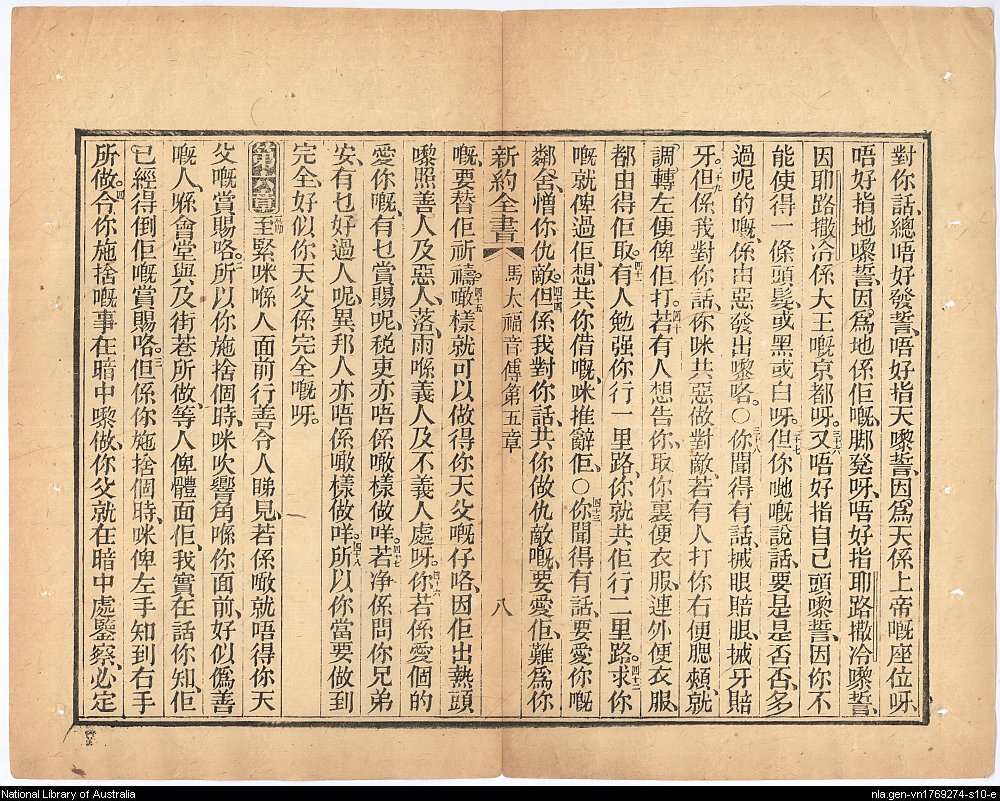 對你話、總唔好發誓、唔好指天嚟誓、因爲天係上帝嘅座位呀、
唔好指地嚟誓、因爲地係佢嘅脚凳呀、唔好指耶路撒冷嚟誓、
因耶路撒冷係大王嘅京都呀。三十六又唔好指自己頭嚟誓、因你不
能使得一條頭髮、或黑或白呀。三十七但你哋嘅說話、要是是否否、多
過呢的嘅、係由惡發出嚟咯。〇三十八你聞得有話、搣眼賠眼、搣牙賠
牙。三十九但係我對你話、你咪共惡做對敵、若有人打你右便腮頰、就
調轉左便俾佢打。四十若有人想告你、取你裏便衣服、連外便衣服、
都由得佢取。四十一有人勉强你行一里路、你就共佢行二里路。四十二求你
嘅就俾過佢、想共你借嘅、咪推辭佢、〇四十三你聞得有話、要愛你嘅
鄰舍、憎你仇敵。四十四但係我對你話、共你做仇敵嘅、要愛佢、難爲你
新約全書 馬太福音傳第五章 八
嘅、要替佢祈禱。四十五噉樣就可以做得你天父嘅仔咯、因佢出熱頭
嚟照善人及惡人、落雨喺義人及不義人處呀。四十六你若係愛個的
愛你嘅、有乜賞賜呢、稅吏亦唔係噉樣做咩。四十七若净係問你兄弟
安、有乜好過人呢、異邦人亦唔係噉樣做咩。四十八所以你當要做到
完全、好似你天父係完全嘅呀。
第六章 第一節至緊咪喺人面前行善、令人睇見、若係噉就唔得你天
父嘅賞賜咯。二所以你施捨個時、咪吹響角喺你面前、好似僞善
嘅人、喺會堂與及街巷所做、等人俾體面佢、我實在話你知、佢
已經得倒佢嘅賞賜咯。三但係你施捨個時、咪俾左手知到右手
所做。四令你施捨嘅事、在暗中嚟做、你父就在暗中處鑒察、必定
National Library of Australia
nla.gen-vn1769274-s10-e